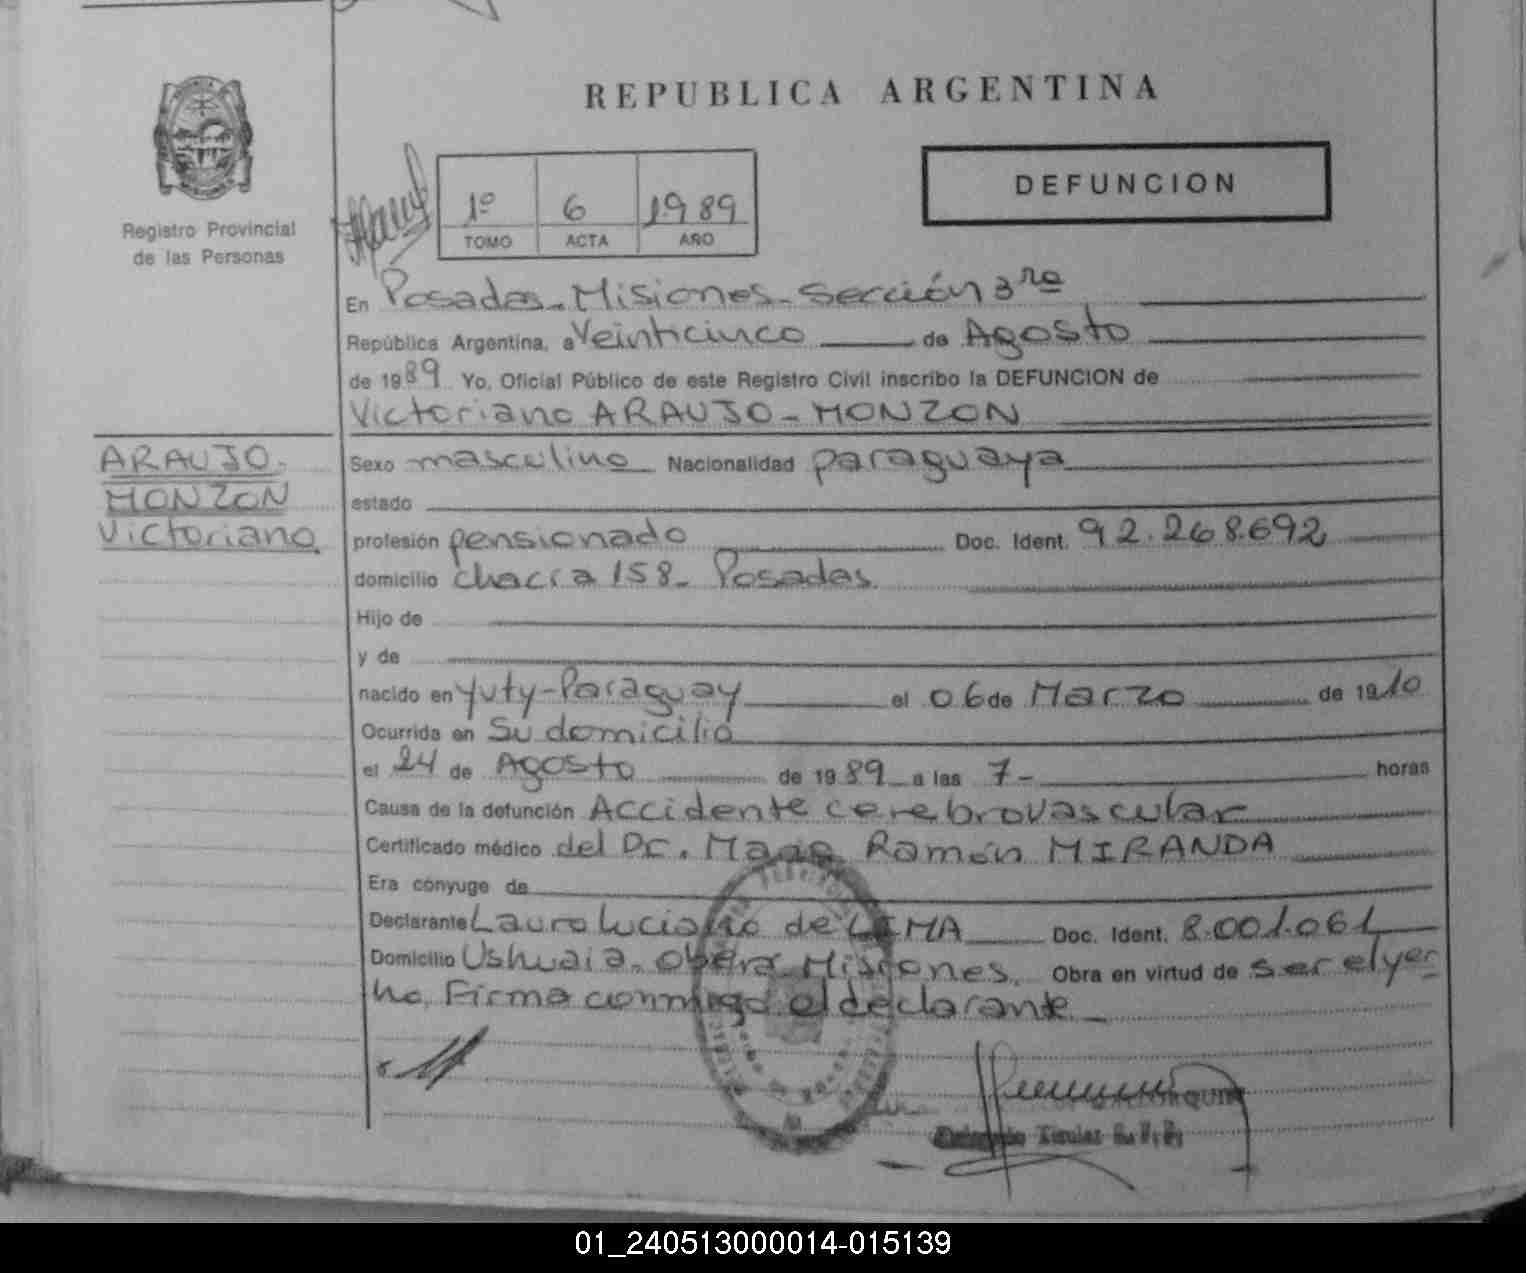 REPUBLICA ARGENTINA
Registro Provincial
de las Personas
1º 6 1989
TOMO ACTA AÑO
DEFUNCION
En Posadas-Misiones-Sección 3ra
República Argentina, a Veinticinco de Agosto
de 1989 Yo, Oficial Público de este Registro Civil inscribo la DEFUNCION de
Victoriano ARAUJO-MONZON
ARAUJO-
MONZON
Victoriano
Sexo masculino Nacionalidad paraguaya
estado
profesión pensionado Doc. Ident. 92.268.692
domicilio chacra 158- Posadas
Hijo de
y de
nacido en Yuty-Paraguay el 06 de Marzo de 1910
Ocurrida en Su domicilio
el 24 de Agosto de 1989 a las 7- horas
Causa de la defunción Accidente cerebrovascular
Certificado médico del Dr. Ramón MIRANDA
Era cónyuge de
Declarante Lauro Luciano de LIMA Doc. Ident. 8.001.061
Domicilio Ushuaia. Oberá Misiones. Obra en virtud de ser el yer
no. Firma conmigo el declarante
Titular
01_240513000014-015139